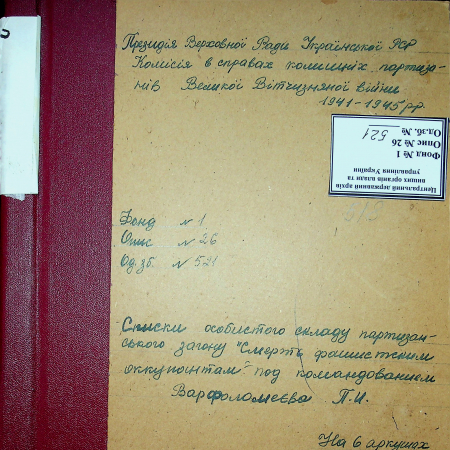 Президія Верховної Ради Української РСР
Комісія в справах колишніх партиза-
нів Великої Вітчизняної війни
1941-1945 рр.
Центральний державний архів
вищих органів влади та
управління України
Фонд № 1
Опис № 26
Од.зб. № 521
Фонд № 1
Опис № 26
Од.зб. № 521
Списки особистого складу партизан-
ського загону "Смерть фашистским
оккупантам" под командованием
Варфоломеєва П.И.
На 6 аркушах